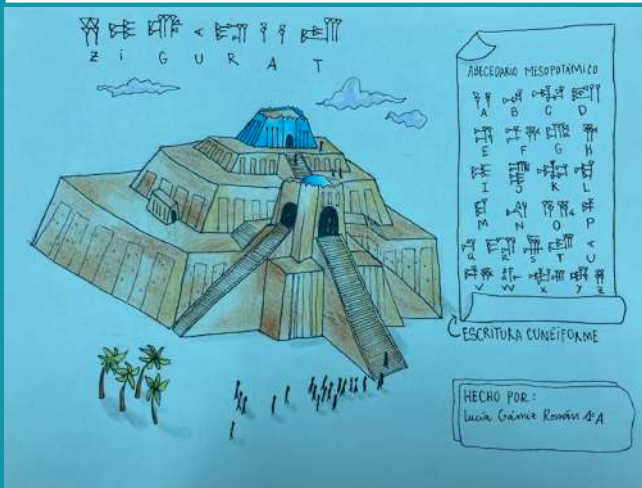 Z I G U R A T
ABECEDARIO MESOPOTÁMICO
A B C D
E F G H
I J K L
M N O P
Q R S T U
V W X Y Z
ESCRITURA CUNEIFORME
HECHO POR:
Lucía Gámiz Román 1ºA